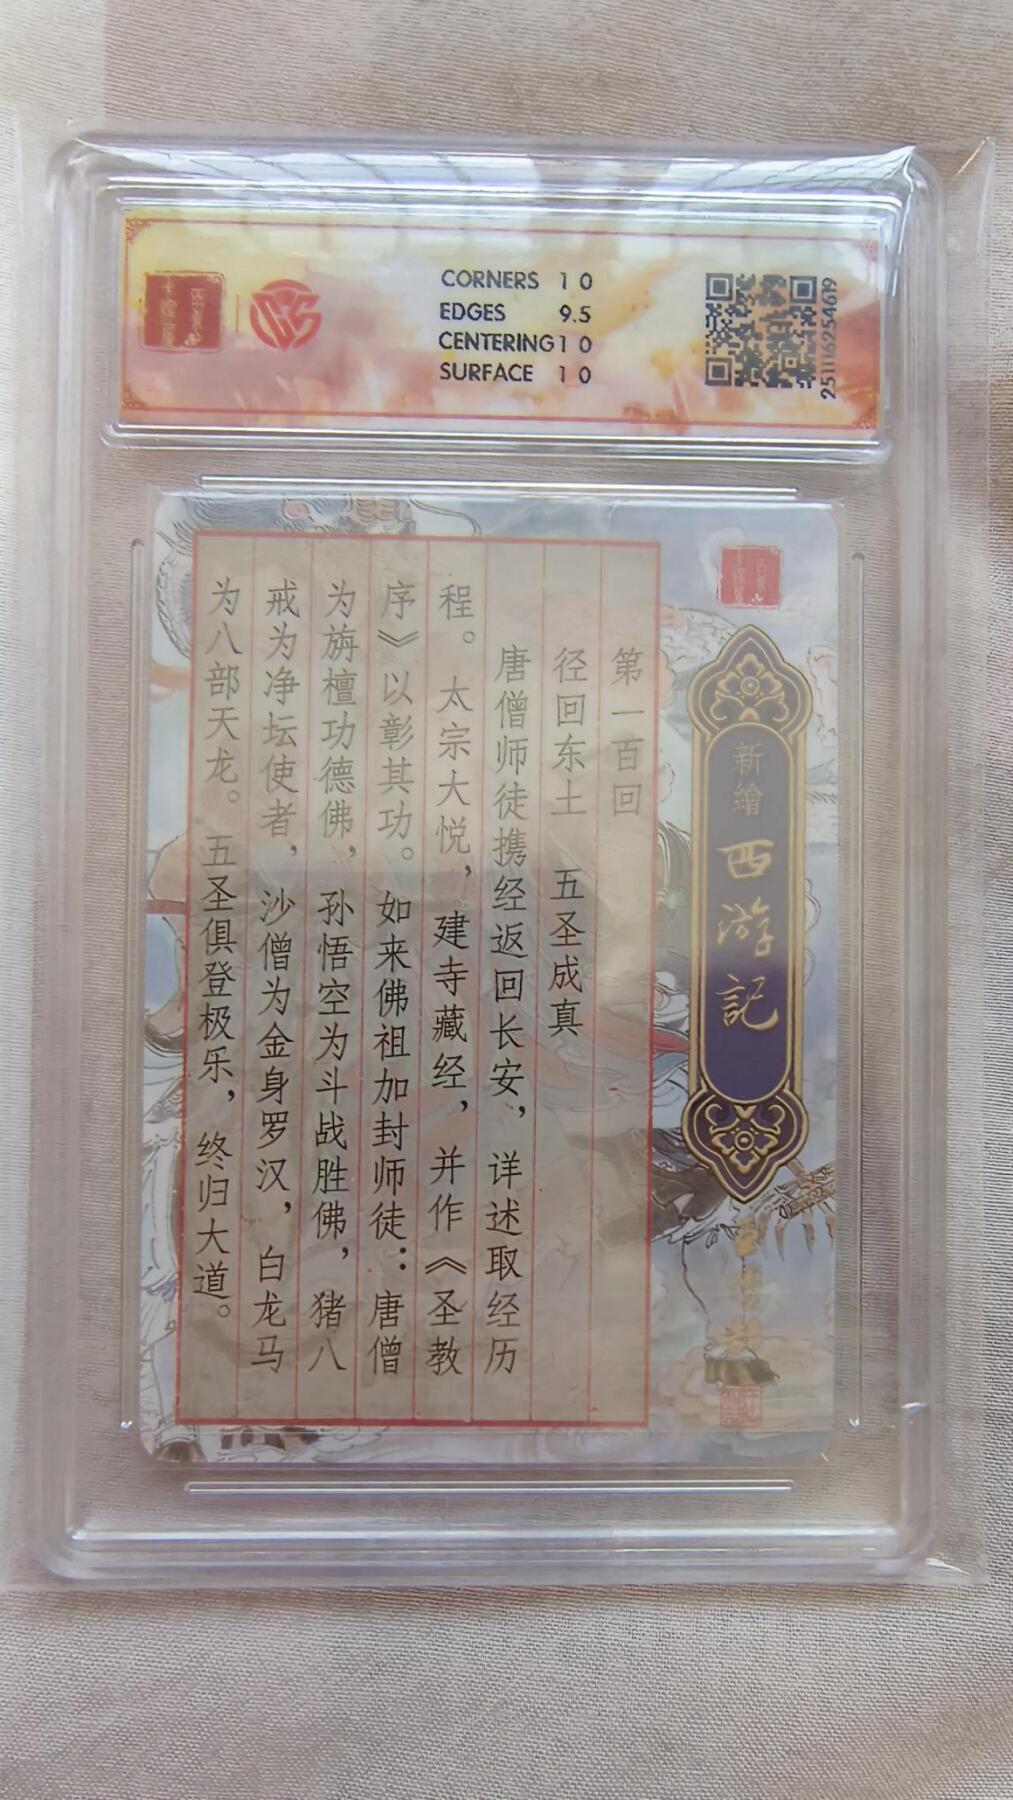 CORNERS 10
EDGES 9.5
CENTERING 10
SURFACE 10
251116254619
新繪
西游記
第一百回
径回东土 五圣成真
唐僧师徒携经返回长安，详述取经历
程。太宗大悦，建寺藏经，并作《圣教
序》以彰其功。如来佛祖加封师徒：唐僧
为旃檀功德佛，孙悟空为斗战胜佛，猪八
戒为净坛使者，沙僧为金身罗汉，白龙马
为八部天龙。五圣俱登极乐，终归大道。